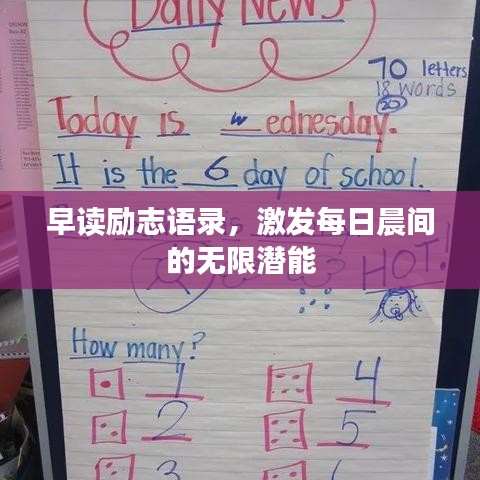 Daily News
70 letters
18 words
20
Today is wednesday.
It is the 6 day of school.
早读励志语录，激发每日晨间
的无限潜能
HOT!
How many?
1 4
2 5
3